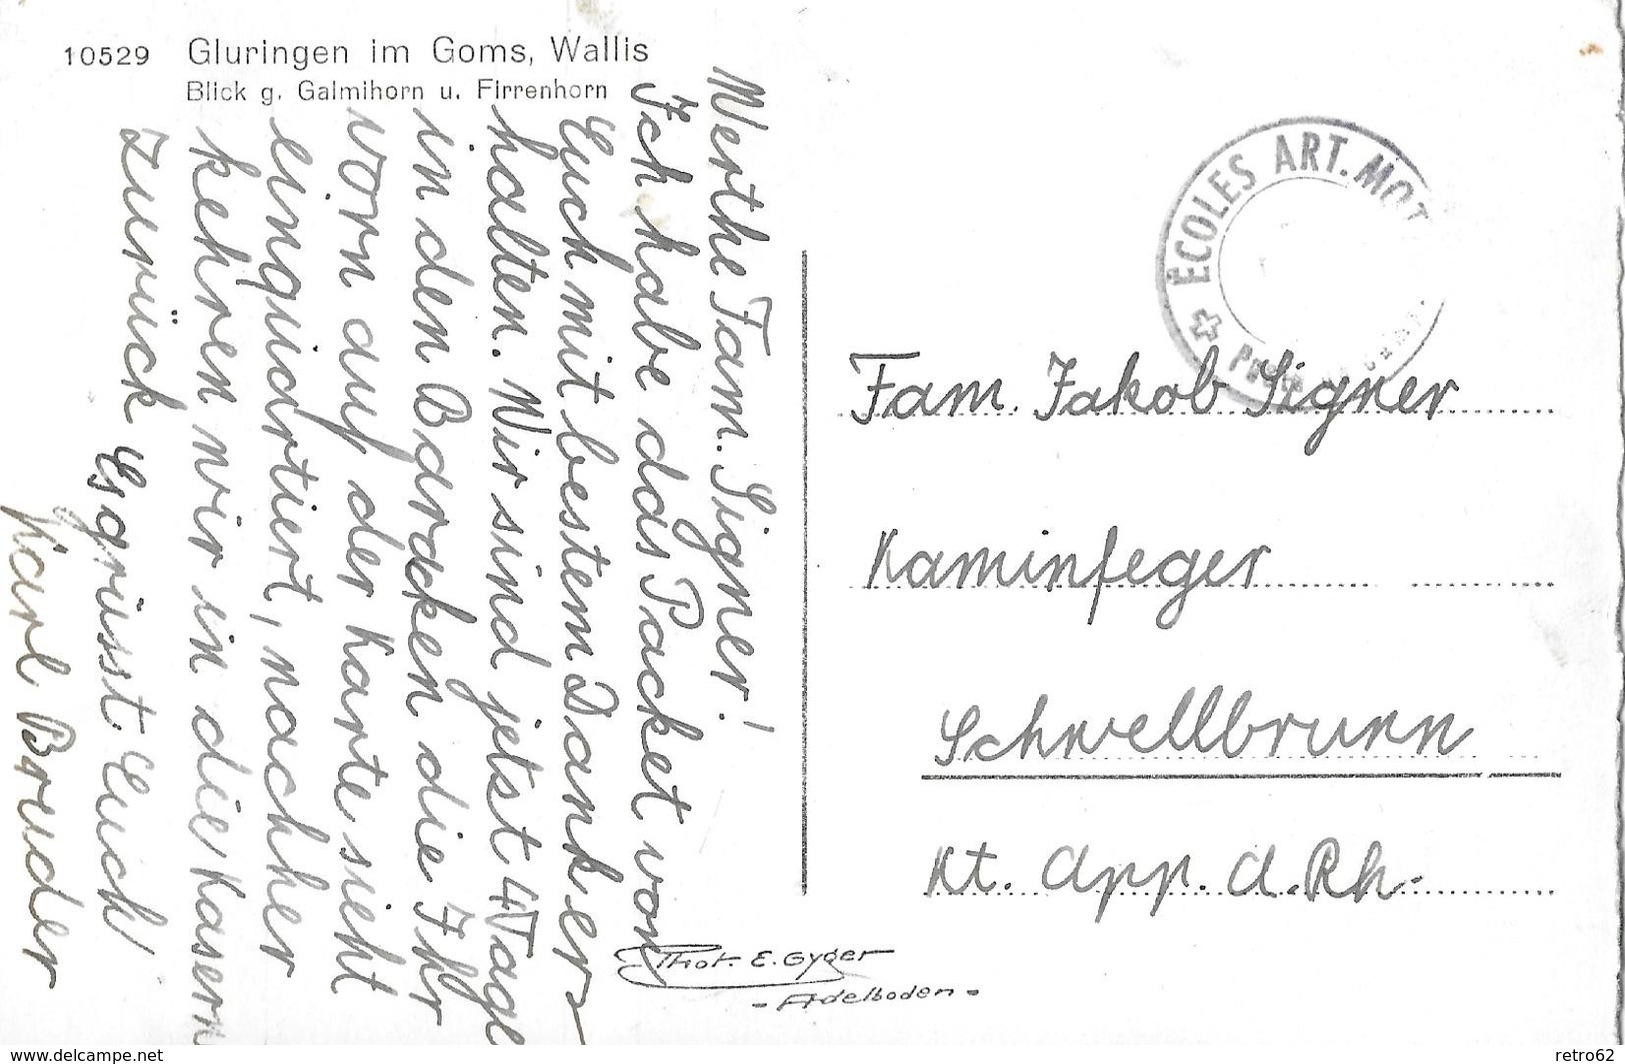 10529 Gluringen im Goms, Wallis
Blick g. Galmihorn u. Firrenhorn
Werthe Fam. Signer!
Ich habe das Packet von
Euch mit bestem Dank er
halten. Wir sind jetst 4 Tage
in den Baracken die Ihr
vorn auf der Karte sieht
einquartiert, nachher
kehren wir in die Kasern
zurück Es grüsst Euch
Karl Bruder
ECOLES ART. MOT
Fam. Jakob Signer
Kaminfeger
Schwellbrunn
Kt. App. A. Rh.
Phot. E. Gyger
- Adelboden -
https://www.delcampe.net
retro62